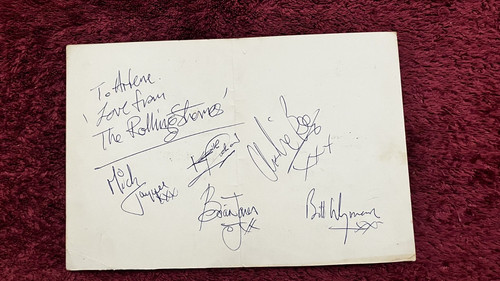 To Arlene.
'Love from
The Rolling Stones'
Mick
Jagger xxx
Brian Jones
xx
Bill Wyman
xxx